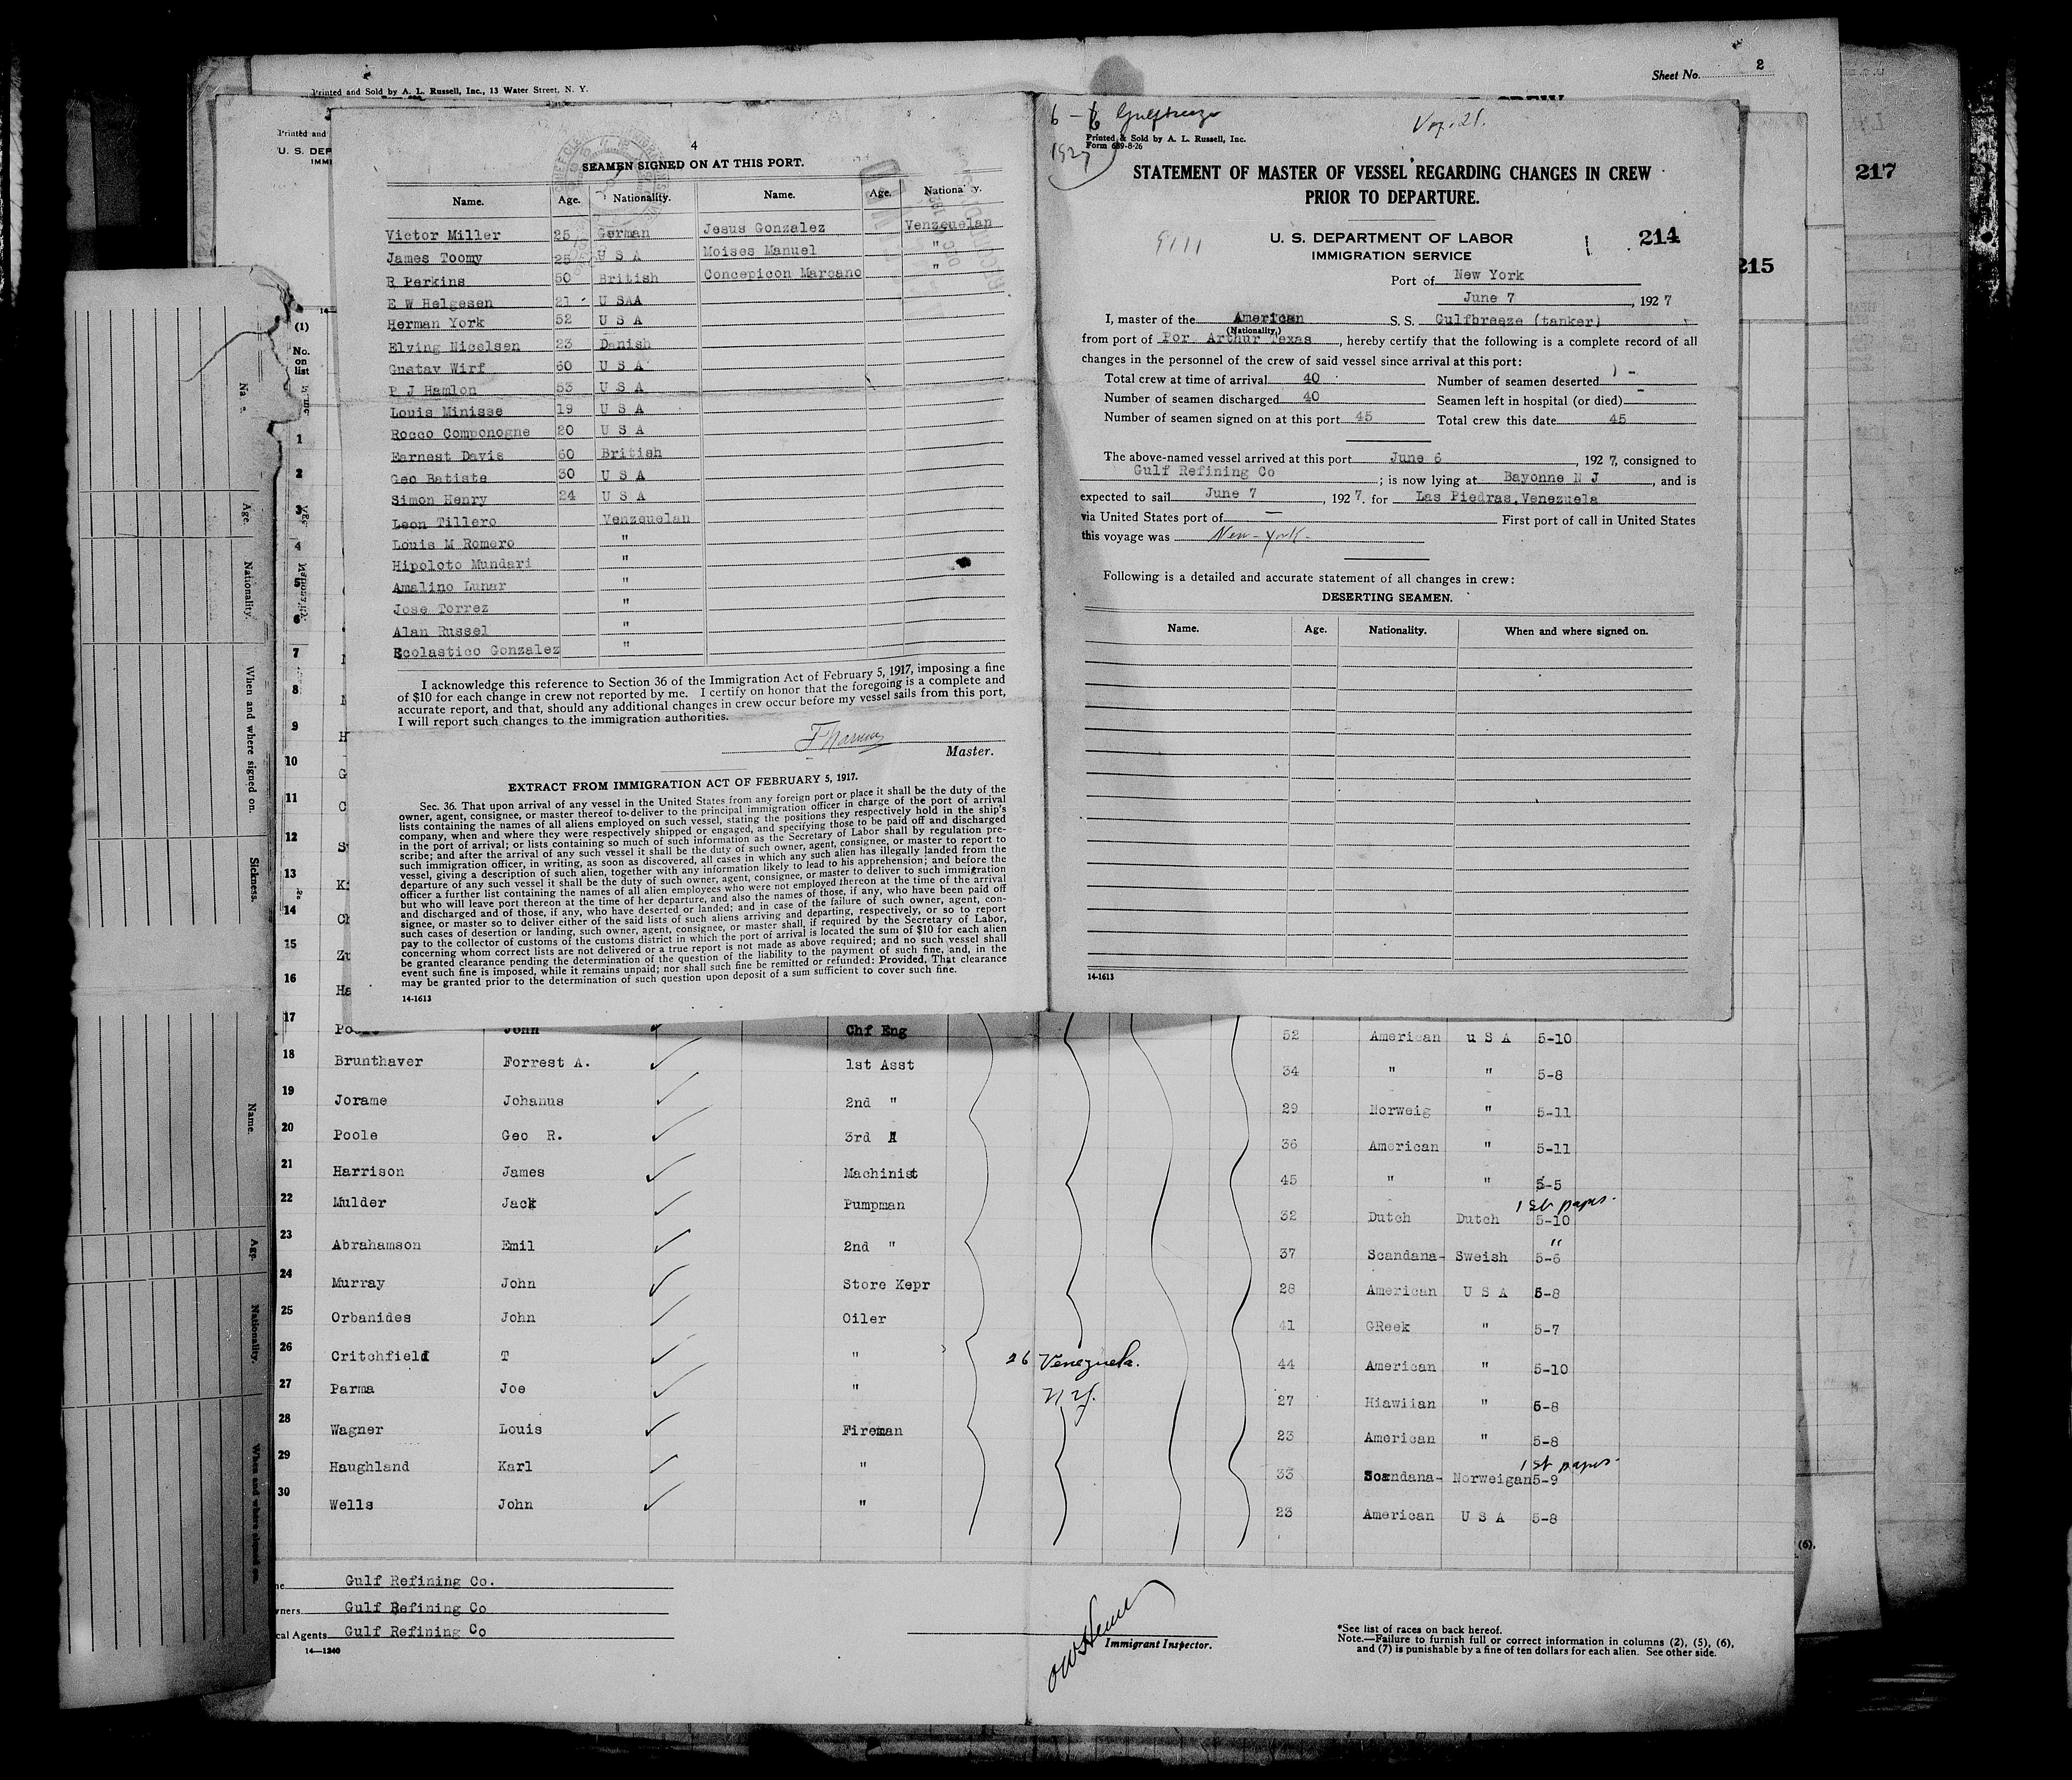 Sheet No. 2
Printed and Sold by A. L. Russell, Inc., 13 Water Street, N. Y.
217
215
Printed and
U. S. DEP
IMMI
4
SEAMEN SIGNED ON AT THIS PORT.
Name. Age. Nationality. Name. Age. Nationality.
Victor Miller 25 German Jesus Gonzalez Venzeuelan
James Toomy 25 U S A Moises Manuel "
R Perkins 50 British Concepicon Marcano "
E W Helgesen 21 U SAA
Herman York 52 U S A
Elving Nicelsen 23 Danish
Gustav Wirf 60 U S A
P J Hamlon 53 U S A
Louis Minisse 19 U S A
Rocco Componogne 20 U S A
Earnest Davis 60 British
Geo Batiste 30 U S A
Simon Henry 24 U S A
Leon Tillero Venzeuelan
Louis M Romero "
Hipoloto Mundari "
Amalino Lunar "
Jose Torrez "
Alan Russel "
Escolastico Gonzalez "
I acknowledge this reference to Section 36 of the Immigration Act of February 5, 1917, imposing a fine
of $10 for each change in crew not reported by me. I certify on honor that the foregoing is a complete and
accurate report, and that, should any additional changes in crew occur before my vessel sails from this port,
I will report such changes to the immigration authorities.
Master.
EXTRACT FROM IMMIGRATION ACT OF FEBRUARY 5, 1917.
Sec. 36. That upon arrival of any vessel in the United States from any foreign port or place it shall be the duty of the
owner, agent, consignee, or master thereof to deliver to the principal immigration officer in charge of the port of arrival
lists containing the names of all aliens employed on such vessel, stating the positions they respectively hold in the ship's
company, when and where they were respectively shipped or engaged, and specifying those to be paid off and discharged
in the port of arrival; or lists containing so much of such information as the Secretary of Labor shall by regulation pre-
scribe; and after the arrival of any such vessel it shall be the duty of such owner, agent, consignee, or master to report to
such immigration officer, in writing, as soon as discovered, all cases in which any such alien has illegally landed from the
vessel, giving a description of such alien, together with any information likely to lead to his apprehension; and before the
departure of any such vessel it shall be the duty of such owner, agent, consignee, or master to deliver to such immigration
officer a further list containing the names of all alien employees who were not employed thereon at the time of the arrival
but who will leave port thereon at the time of her departure, and also the names of those, if any, who have been paid off
and discharged and of those, if any, who have deserted or landed; and in case of the failure of such owner, agent, con-
signee, or master so to deliver either of the said lists of such aliens arriving and departing, respectively, or so to report
such cases of desertion or landing, such owner, agent, consignee, or master shall, if required by the Secretary of Labor,
pay to the collector of customs of the customs district in which the port of arrival is located the sum of $10 for each alien
concerning whom correct lists are not delivered or a true report is not made as above required; and no such vessel shall
be granted clearance pending the determination of the question of the liability to the payment of such fine, and, in the
event such fine is imposed, while it remains unpaid; nor shall such fine be remitted or refunded: Provided, That clearance
may be granted prior to the determination of such question upon deposit of a sum sufficient to cover such fine.
14-1613
6 - 6 Gulfbreeze
1927
Voy. 21.
Printed & Sold by A. L. Russell, Inc.
Form 689-8-26
STATEMENT OF MASTER OF VESSEL REGARDING CHANGES IN CREW
PRIOR TO DEPARTURE.
U. S. DEPARTMENT OF LABOR
IMMIGRATION SERVICE
214
Port of New York
June 7, 1927
I, master of the American S. S. Gulfbreeze (tanker)
(Nationality)
from port of Por Arthur Texas, hereby certify that the following is a complete record of all
changes in the personnel of the crew of said vessel since arrival at this port:
Total crew at time of arrival 40 Number of seamen deserted -
Number of seamen discharged 40 Seamen left in hospital (or died) -
Number of seamen signed on at this port 45 Total crew this date 45
The above-named vessel arrived at this port June 6, 1927, consigned to
Gulf Refining Co; is now lying at Bayonne N J, and is
expected to sail June 7, 1927 for Las Piedras, Venezuela
via United States port of — First port of call in United States
this voyage was New-York-
Following is a detailed and accurate statement of all changes in crew:
DESERTING SEAMEN.
Name. Age. Nationality. When and where signed on.
14-1613
(1)
No.
on
list
1
2
3
4
5
6
7
8
9
10
11
12
13
14
15
16
17 John Chf Eng 52 American u S A 5-10
18 Brunthaver Forrest A. 1st Asst 34 " " 5-8
19 Jorame Johanus 2nd " 29 Norweig " 5-11
20 Poole Geo R. 3rd A 36 American " 5-11
21 Harrison James Machinist 45 " " 5-5
22 Mulder Jack Pumpman 32 Dutch Dutch 5-10 1st papes.
23 Abrahamson Emil 2nd " 37 Scandana- Sweish 5-6 "
24 Murray John Store Kepr 28 American U S A 5-8
25 Orbanides John Oiler 41 GReek " 5-7
26 Critchfield T " 26 Venezuela. 44 American " 5-10
27 Parma Joe " N.Y. 27 Hiawiian " 5-8
28 Wagner Louis Fireman 23 American " 5-8
29 Haughland Karl " 33 Scandana- Norweigan 5-9 1st papes.
30 Wells John " 23 American U S A 5-8
Gulf Refining Co.
wners Gulf Refining Co
cal Agents Gulf Refining Co
14—1240
Immigrant Inspector.
*See list of races on back hereof.
Note.—Failure to furnish full or correct information in columns (2), (5), (6),
and (7) is punishable by a fine of ten dollars for each alien. See other side.
(6).
Age.
Nationality.
When and where signed on.
Sickness.
Name.
Age.
Nationality.
When and where signed on.